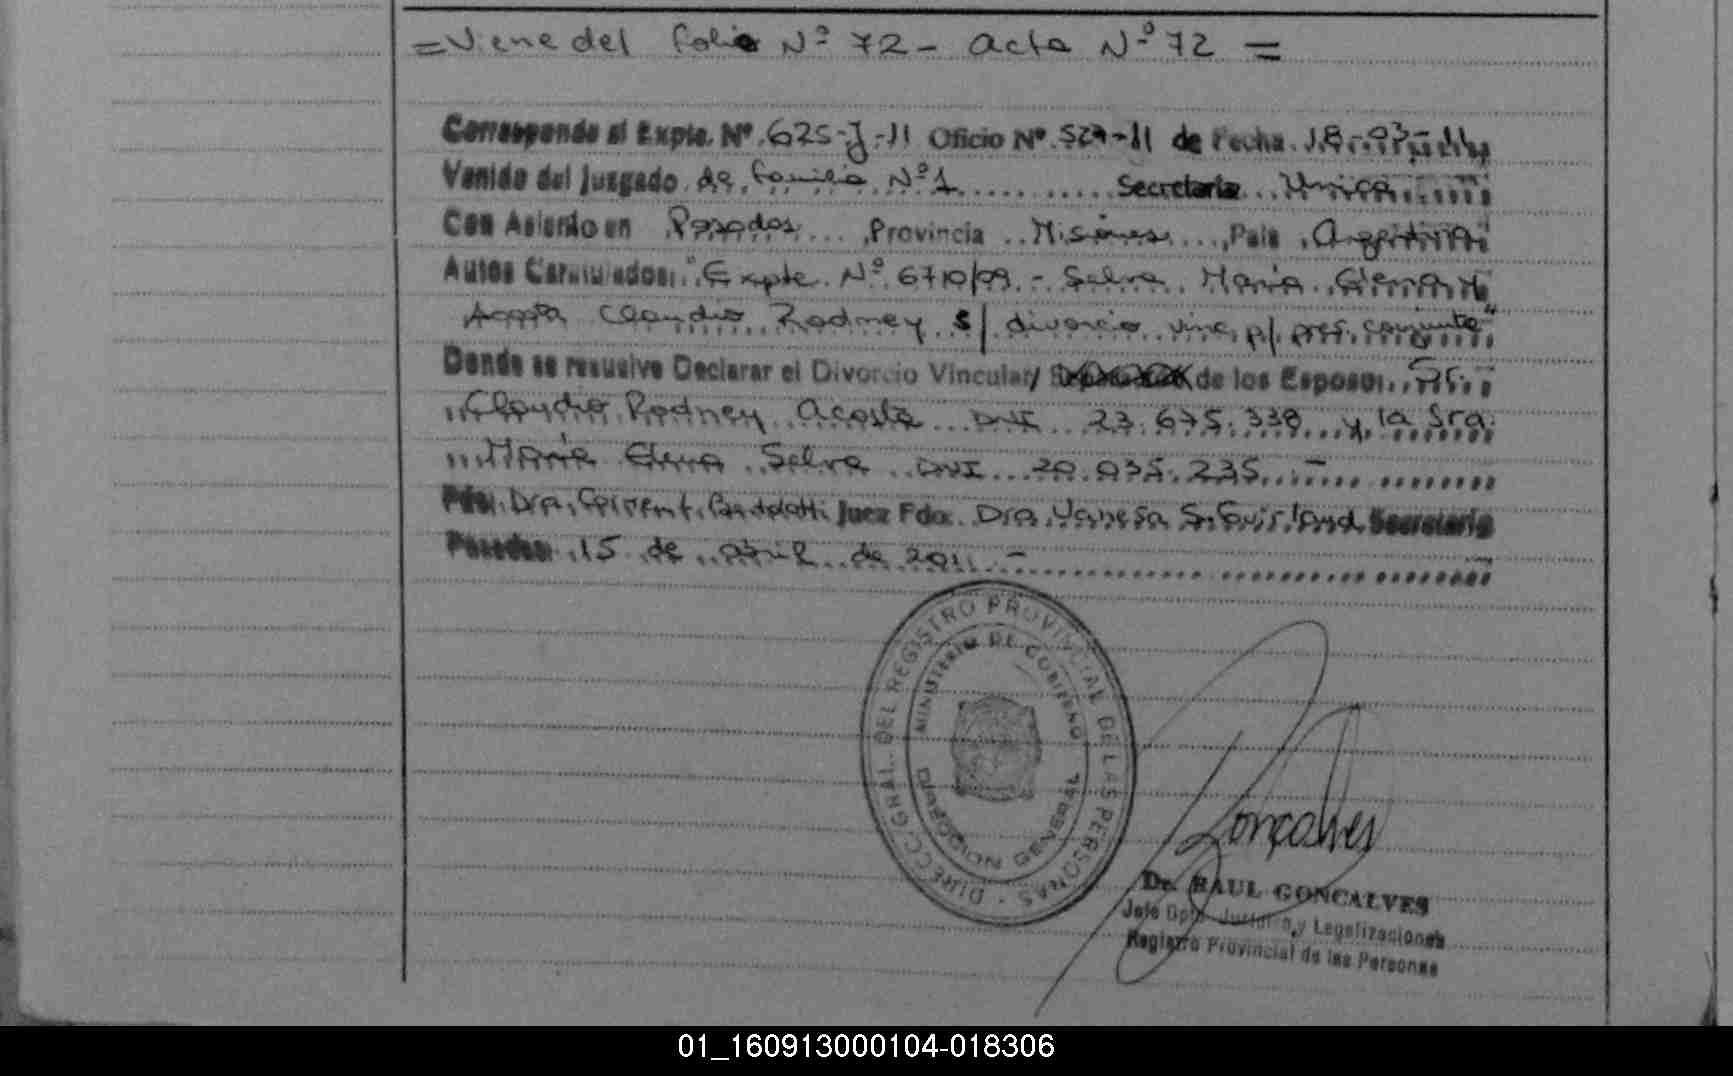 = Viene del folio Nº 72 - Acta Nº 72 =
Corresponde al Expte. Nº. 625-J-11 Oficio Nº. 527-11 de Fecha. 18-03-11
Venido del Juzgado de Familia Nº 1 Secretaria Unica
Con Asiento en Posadas Provincia Misiones País Argentina
Autos Caratulados: "Expte. Nº 6710/09 - Selva María Elena y
Acosta Claudio Rodney s/ divorcio vinc. p/ pres. conjunta"
Donde se resuelve Declarar el Divorcio Vincular/ de los Esposos: Sr.
Claudio Rodney Acosta DNI 23.675.338 y la Sra.
María Elena Selva DNI 20.035.235.-
Fdo. Dra. Juez Fdo. Dra. Vanesa Secretaria
Posadas 15 de abril de 2011 -
DIRECC. GRAL. DEL REGISTRO PROVINCIAL DE LAS PERSONAS
MINISTERIO DE GOBIERNO
DIRECCION GENERAL
Goncalves
Dr. RAUL GONCALVES
Jefe Dpto. Jurídico y Legalizaciones
Registro Provincial de las Personas
01_160913000104-018306